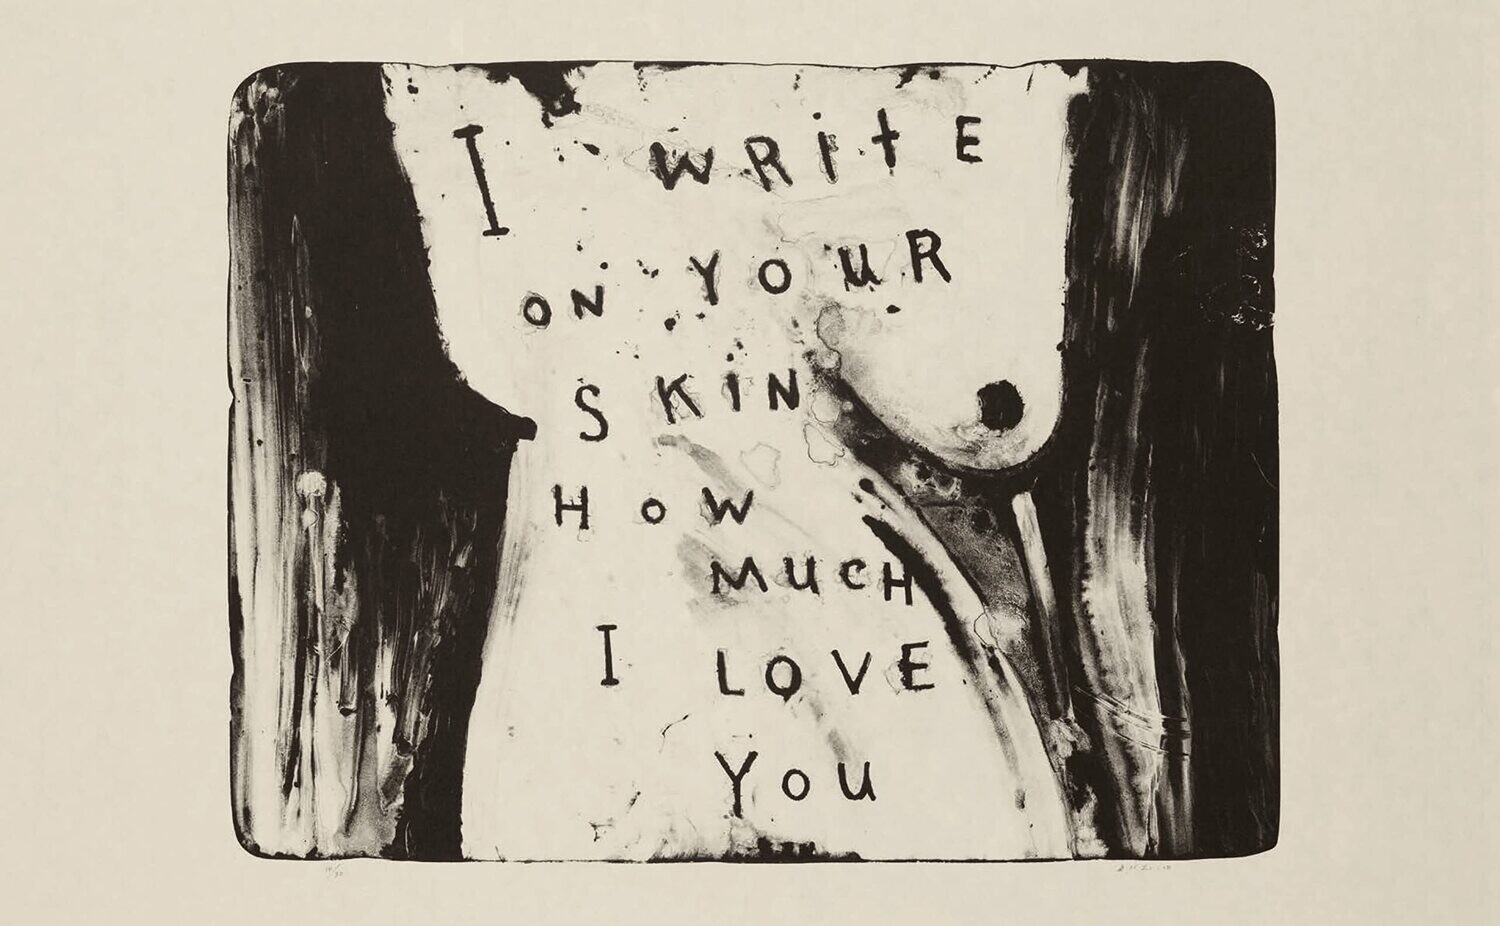 I WRItE
ON YOUR
SKIN
HoW
MUCH
I LOVE
You